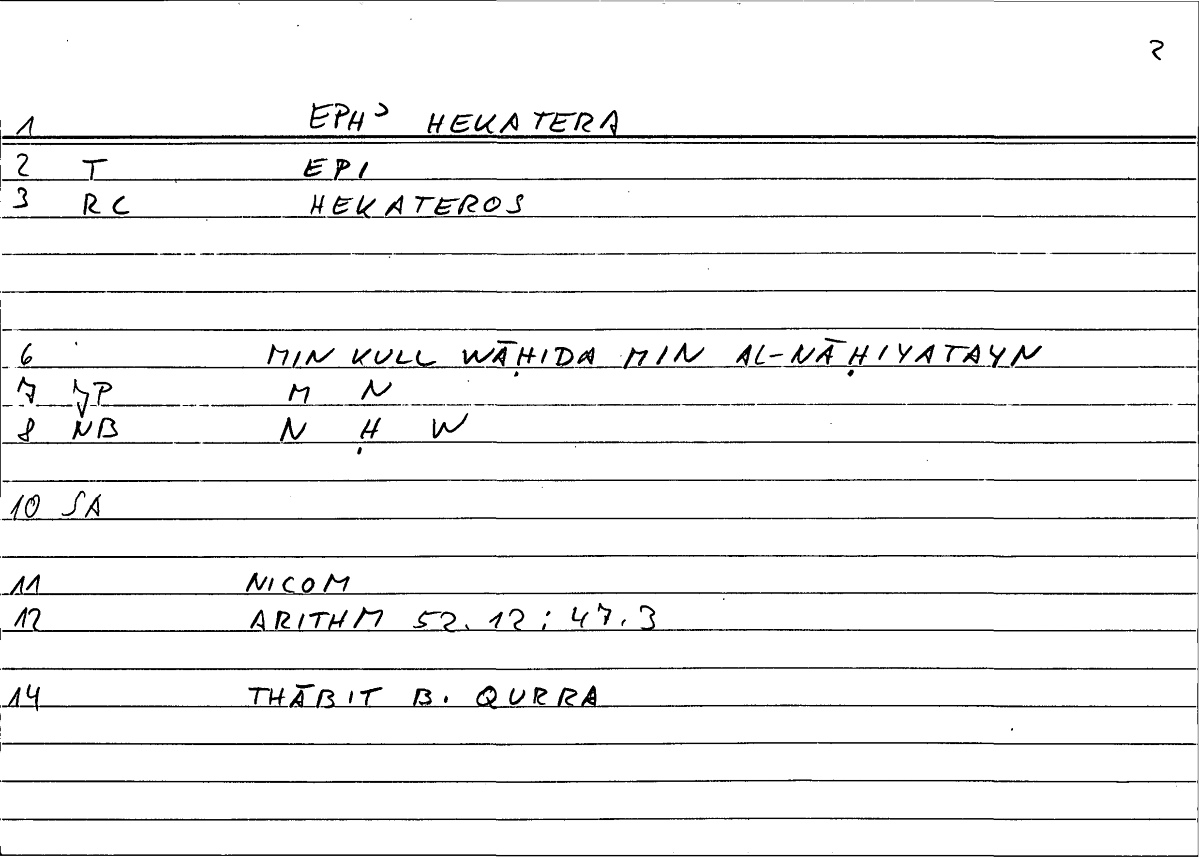 2
1 EPHʾ HEKATERA
2 T EPI
3 RC HEKATEROS
6 MIN KULL WĀḤIDA MIN AL-NĀḤIYATAYN
7 JP M N
8 NB N Ḥ W
10 SA
11 NICOM
12 ARITHM 52.12 : 47.3
14 THĀBIT B. QURRA